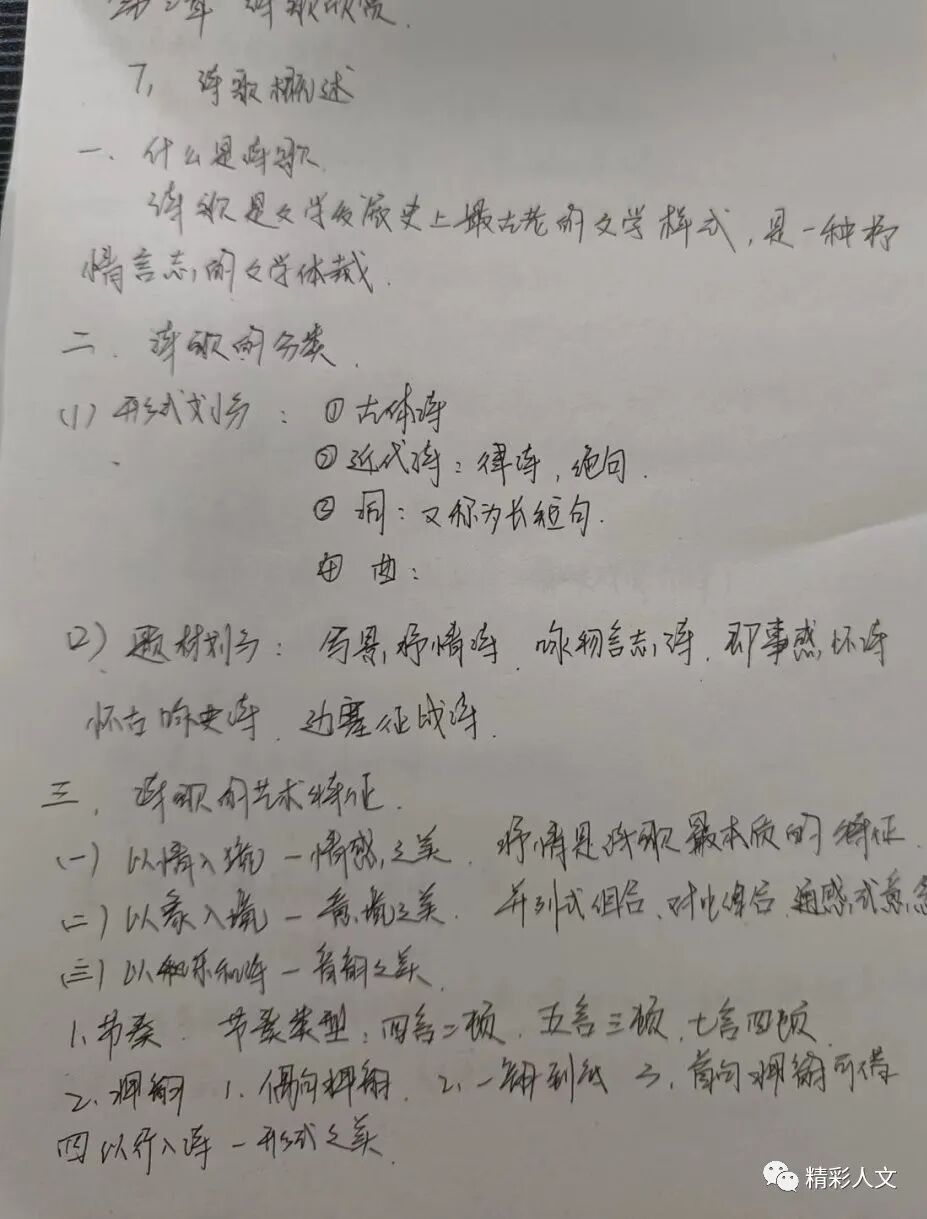 第二章 诗歌欣赏.
7, 诗歌概述
一、什么是诗歌.
诗歌是文学发展史上最古老的文学样式,是一种抒
情言志的文学体裁.
二、诗歌的分类.
(1) 形式划分: ①古体诗
②近代诗:律诗,绝句.
③ 词:又称为长短句.
④ 曲:
(2) 题材划分: 写景抒情诗、咏物言志诗、即事感怀诗
怀古咏史诗、边塞征战诗.
三、诗歌的艺术特征.
(一) 以情入境—情感之美. 抒情是诗歌最本质的特征.
(二) 以象入境—意境之美. 并列式组合、对比组合、通感式意
(三) 以乐和诗—音韵之美.
1、节奏. 节奏类型:四言二顿、五言三顿、七言四顿
2、押韵 1、偶句押韵. 2、一韵到底 3、首句押韵可借
四 以行入诗—形式之美.
精彩人文